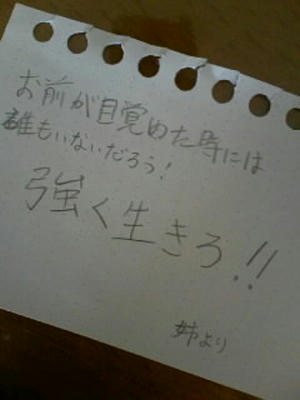 お前が目覚めた時には
誰もいないだろう!
強く生きろ!!
姉より